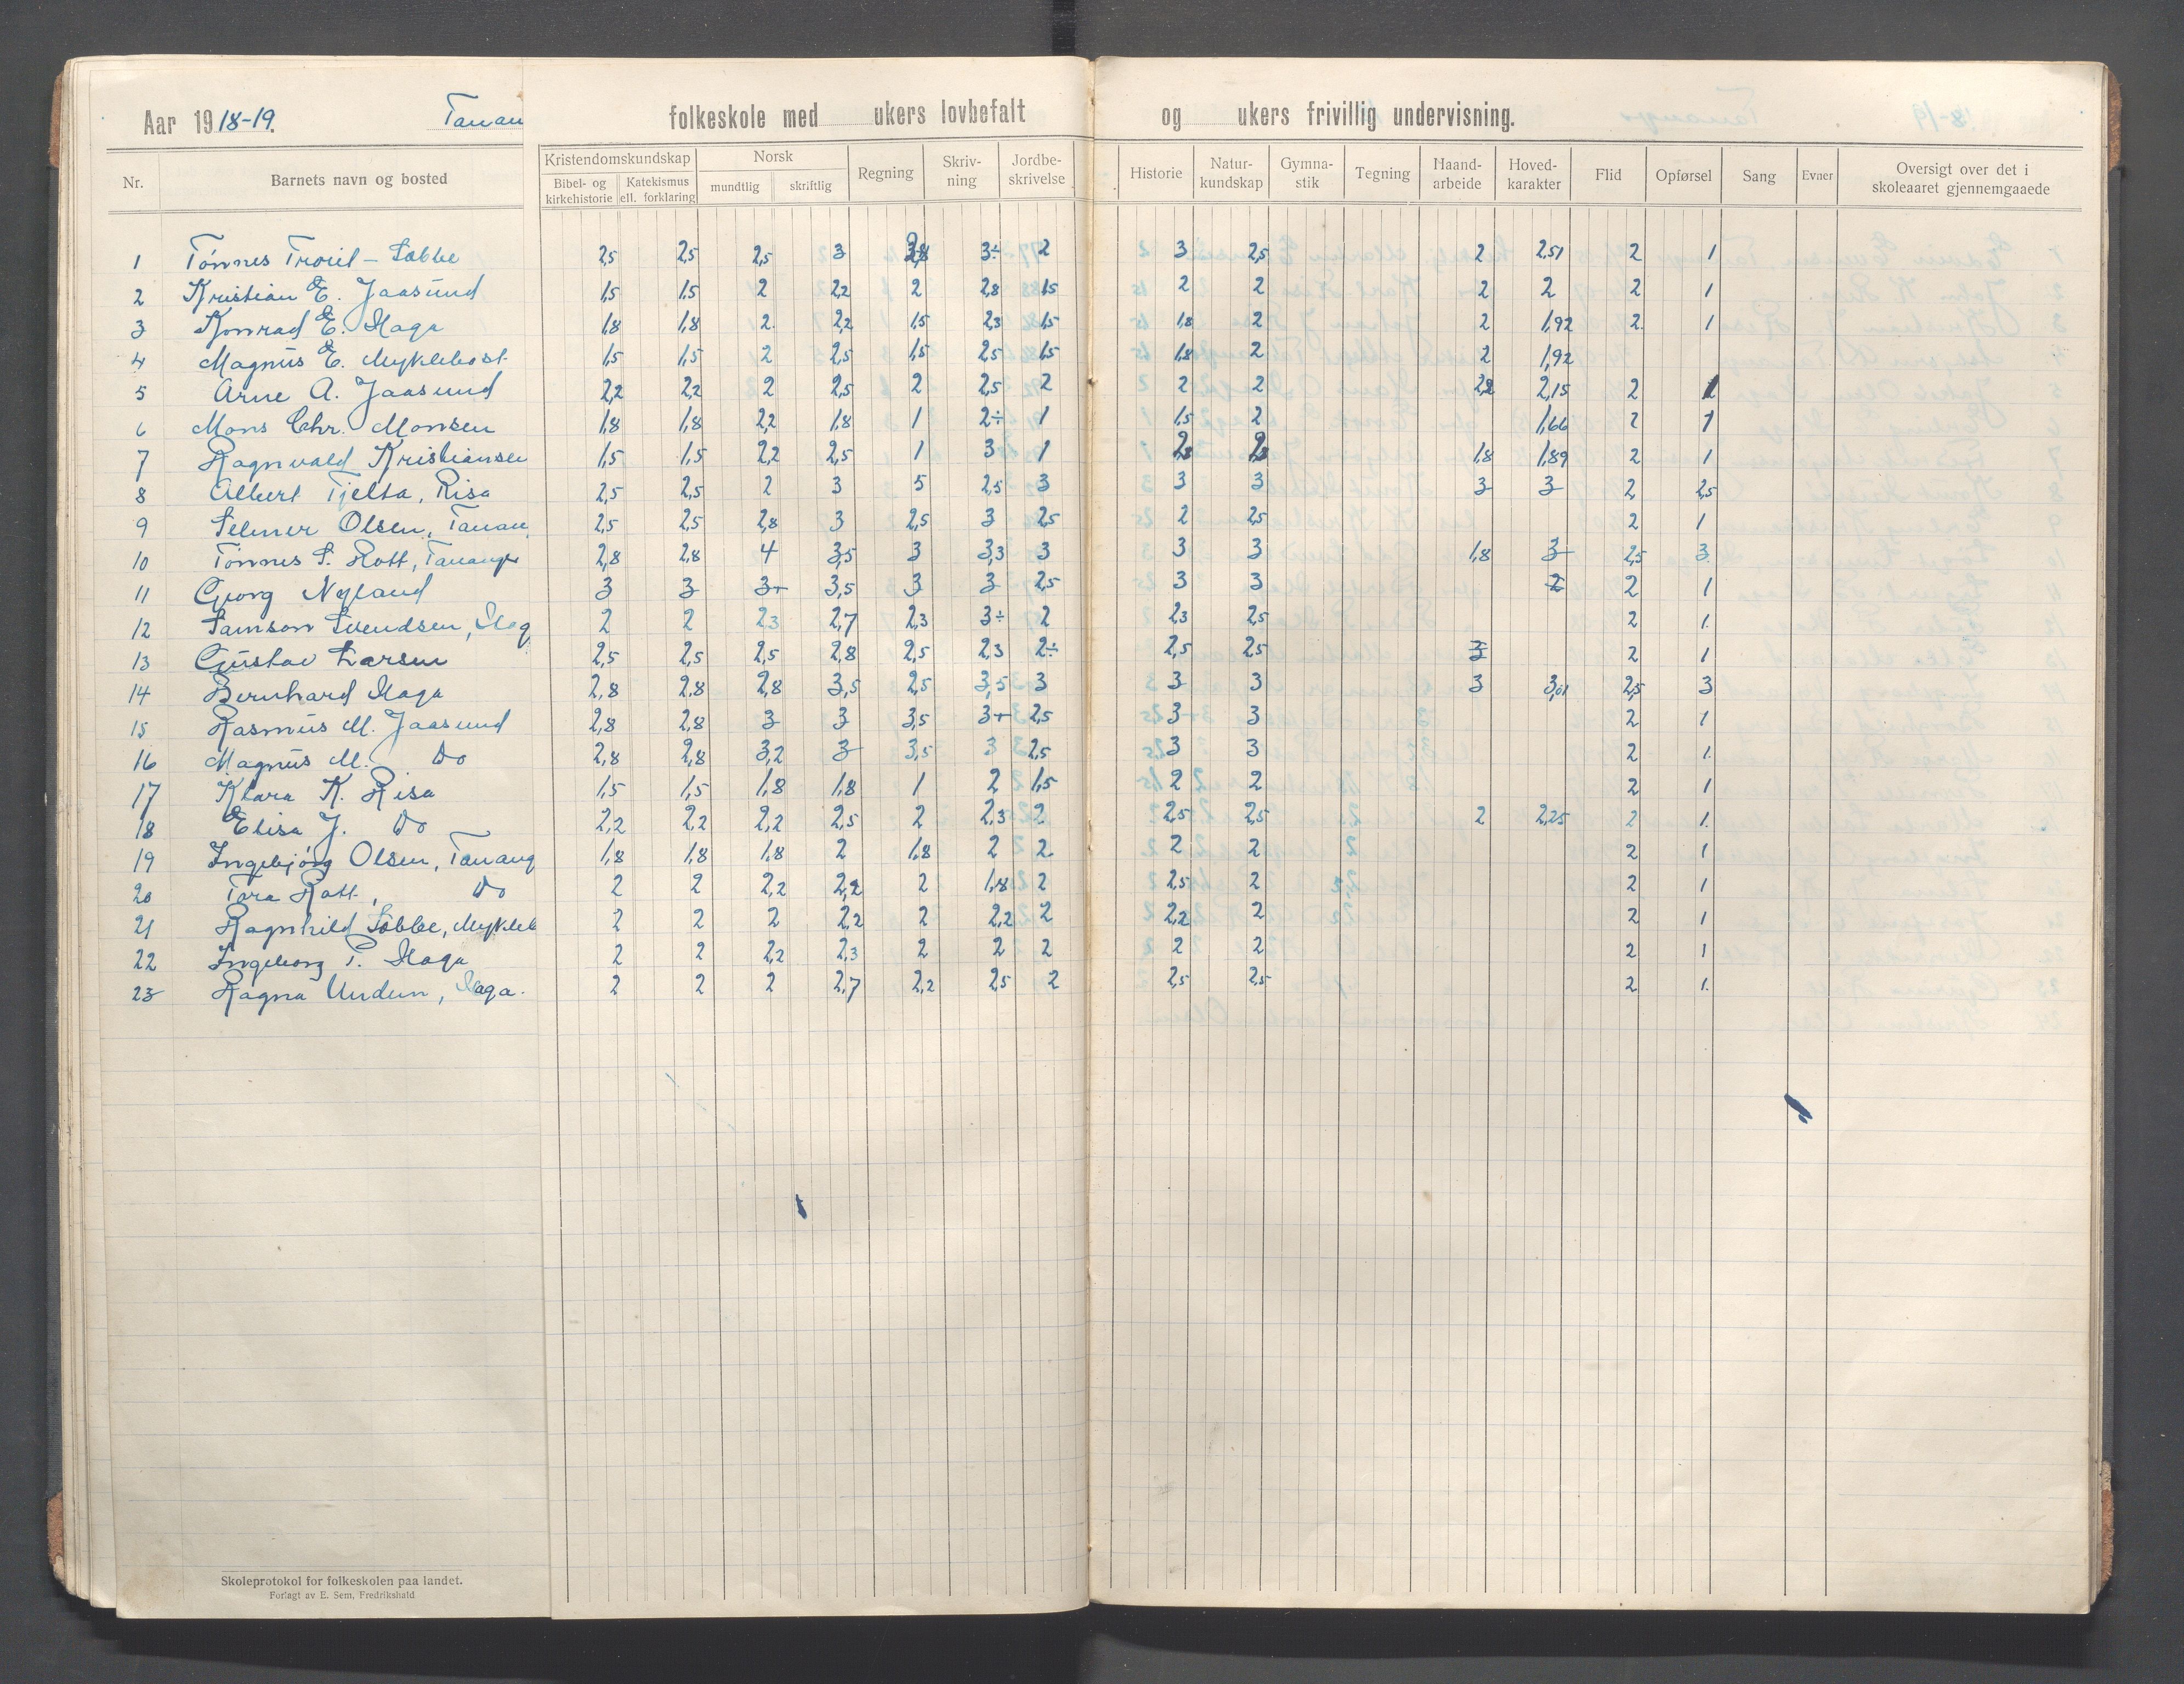 Aar 1918-19. Tanan folkeskole med ukers lovbefalt og ukers frivillig undervisning.
Nr. Barnets navn og bosted Kristendomskundskap Bibel- og kirkehistorie Katekismus ell. forklaring Norsk mundtlig skriftlig Regning Skriv-ning Jordbe-skrivelse Historie Natur-kundskap Gymna-stik Tegning Haand-arbeide Hoved-karakter Flid Opførsel Sang Evner Oversigt over det i skoleaaret gjennemgaaede
1 Tønnes - Sæbbe 2,5 2,5 2,5 3 3÷ 2 3 2,5 2 2,51 2 1
2 Kristian E. Jaasund 1,5 1,5 2 2,2 2 2,8 1,5 2 2 2 2 2 1
3 Konrad E. Haga 1,8 1,8 2 2,2 1,5 2,3 1,5 1,8 2 2 1,92 2 1
4 Magnus E. Myklebost 1,5 1,5 2 2,5 1,5 2,5 1,5 1,8 2 2 1,92
5 Arne A. Jaasund 2,2 2,2 2 2,5 2 2,5 2 2 2 2,2 2,15 2 1
6 Mons Chr. Monsen 1,8 1,8 2,2 1,8 1 2÷ 1 1,5 2 1,66 2 1
7 Ragnvald Kristiansen 1,5 1,5 2,2 2,5 1 3 1 1,8 1,89 2 1
8 Albert Tjelta, Risa 2,5 2,5 2 3 5 2,5 3 3 3 3 3 2 2,5
9 Selmer Olsen, Tanan 2,5 2,5 2,8 3 2,5 3 2,5 2 2,5 2 1
10 Tønnes S. Rott, Tananger 2,8 2,8 4 3,5 3 3,3 3 3 3 1,8 3 2,5 3
11 Georg Nyland 3 3 3+ 3,5 3 3 2,5 3 3 2 2 1
12 Samson Svendsen, Hag 2 2 2,3 2,7 2,3 3÷ 2 2,3 2,5 2 1.
13 Gustav Larsen 2,5 2,5 2,5 2,8 2,5 2,3 2÷ 2,5 2,5 3 2 1
14 Bernhard Haga 2,8 2,8 2,8 3,5 2,5 3,5 3 3 3 3 3,01 2,5 3
15 Rasmus M. Jaasund 2,8 2,8 3 3 3,5 3+ 2,5 3 3 2 1
16 Magnus M. Do 2,8 2,8 3,2 3 3,5 3 2,5 3 3 2 1.
17 Klara K. Risa 1,5 1,5 1,8 1,8 1 2 1,5 2 2 2 1
18 Elisa J. Do 2,2 2,2 2,2 2,5 2 2,3 2 2,5 2,5 2 2,25 2 1.
19 Ingebjørg Olsen, Tanang 1,8 1,8 1,8 2 1,8 2 2 2 2 2 1
20 Tora Rott, Do 2 2 2,2 2,2 2 1,8 2 2,5 2 2 1
21 Ragnhild Sæbbe, Mykleb 2 2 2 2,2 2 2,2 2 2,2 2 2 1
22 Ingeborg T. Haga 2 2 2,2 2,3 2 2 2 2 2 2 1
23 Ragna Undem, Haga. 2 2 2 2,7 2,2 2,5 2 2,5 2,5 2 1.
Skoleprotokol for folkeskolen paa landet.
Forlagt av E. Sem, Fredrikshald